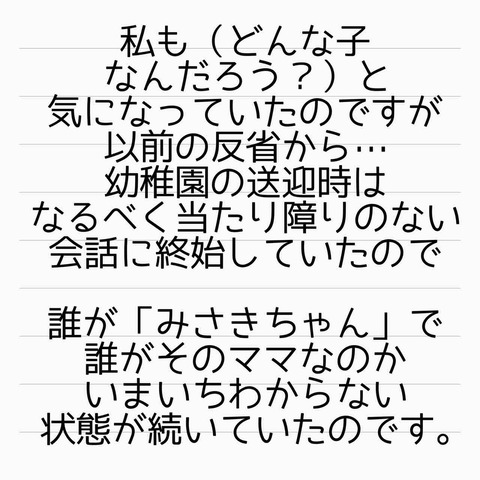 私も（どんな子
なんだろう？）と
気になっていたのですが
以前の反省から…
幼稚園の送迎時は
なるべく当たり障りのない
会話に終始していたので
誰が「みさきちゃん」で
誰がそのママなのか
いまいちわからない
状態が続いていたのです。